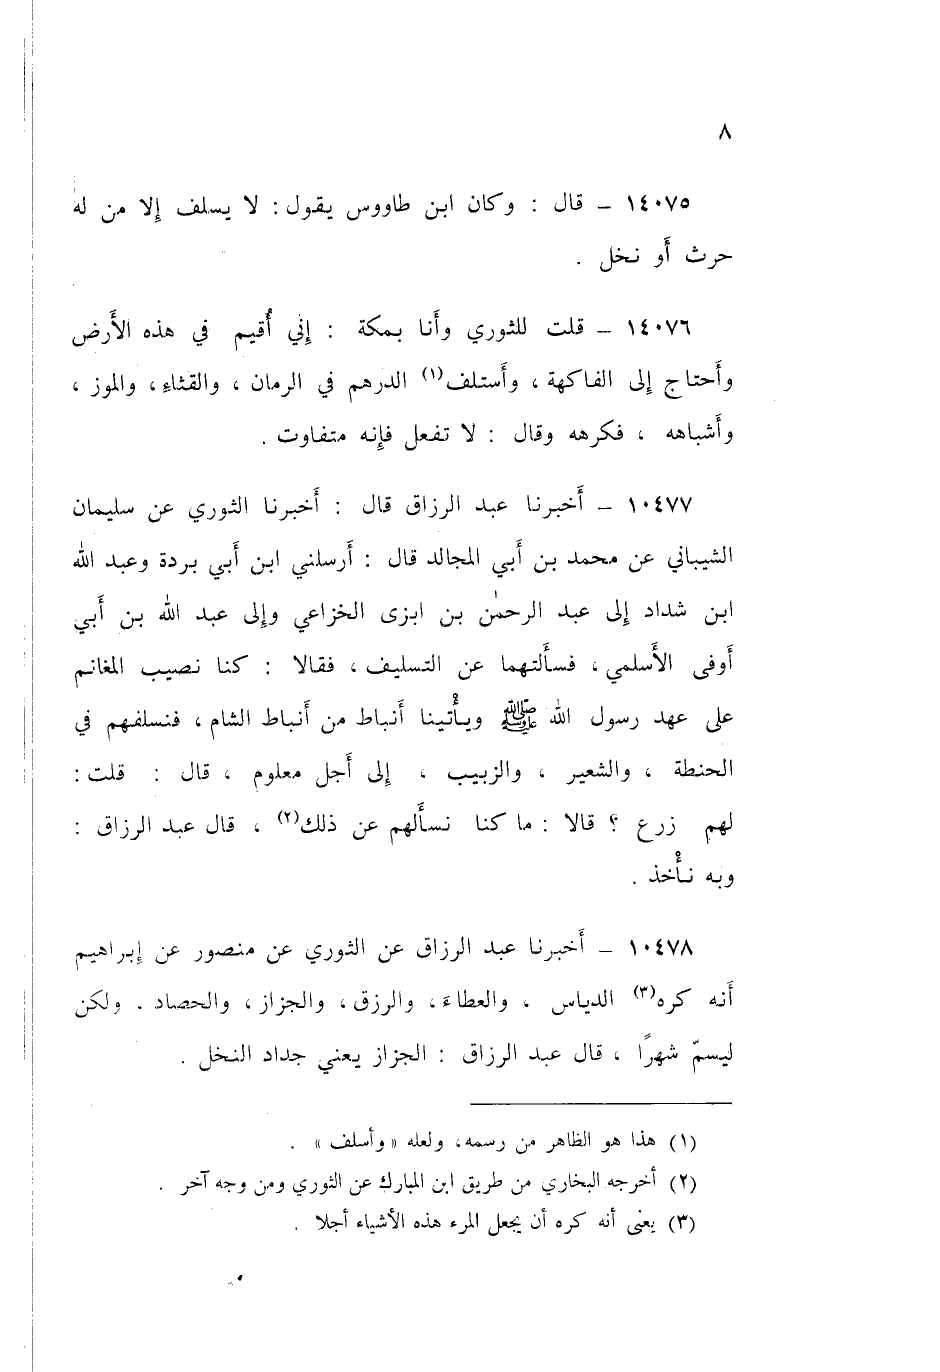 ٨
١٤٠٧٥ – قال : وكان ابن طاووس يقول : لا يسلف إلا من له
حرث أَو نخل .
١٤٠٧٦ – قلت للثوري وأَنا بمكة : إِني أُقيم في هذه الأَرض
وأَحتاج إِلى الفاكهة ، وأَستلف(١) الدرهم في الرمان ، والقثاءِ ، والموز ،
وأَشباهه ، فكرهه وقال : لا تفعل فإِنه متفاوت .
١٠٤٧٧ – أَخبرنا عبد الرزاق قال : أَخبرنا الثوري عن سليمان
الشيباني عن محمد بن أَبي المجالد قال : أَرسلني ابن أَبي بردة وعبد الله
ابن شداد إِلى عبد الرحمٰن بن ابزى الخزاعي وإِلى عبد الله بن أَبي
أَوفى الأَسلمي ، فسأَلتهما عن التسليف ، فقالا : كنا نصيب المغانم
على عهد رسول الله ﷺ ويأْتينا أَنباط من أَنباط الشام ، فنسلفهم في
الحنطة ، والشعير ، والزبيب ، إِلى أَجل معلوم ، قال : قلت :
لهم زرع ؟ قالا : ما كنا نسأَلهم عن ذلك(٢) ، قال عبد الرزاق :
وبه نأْخذ .
١٠٤٧٨ – أَخبرنا عبد الرزاق عن الثوري عن منصور عن إِبراهيم
أَنه كره(٣) الدياس ، والعطاءَ ، والرزق ، والجزاز ، والحصاد . ولكن
ليسمّ شهرًا ، قال عبد الرزاق : الجزاز يعني جداد النخل .
(١) هذا هو الظاهر من رسمه، ولعله «وأسلف» .
(٢) أخرجه البخاري من طريق ابن المبارك عن الثوري ومن وجه آخر .
(٣) يعنى أنه كره أن يجعل المرء هذه الأشياء أجلا .